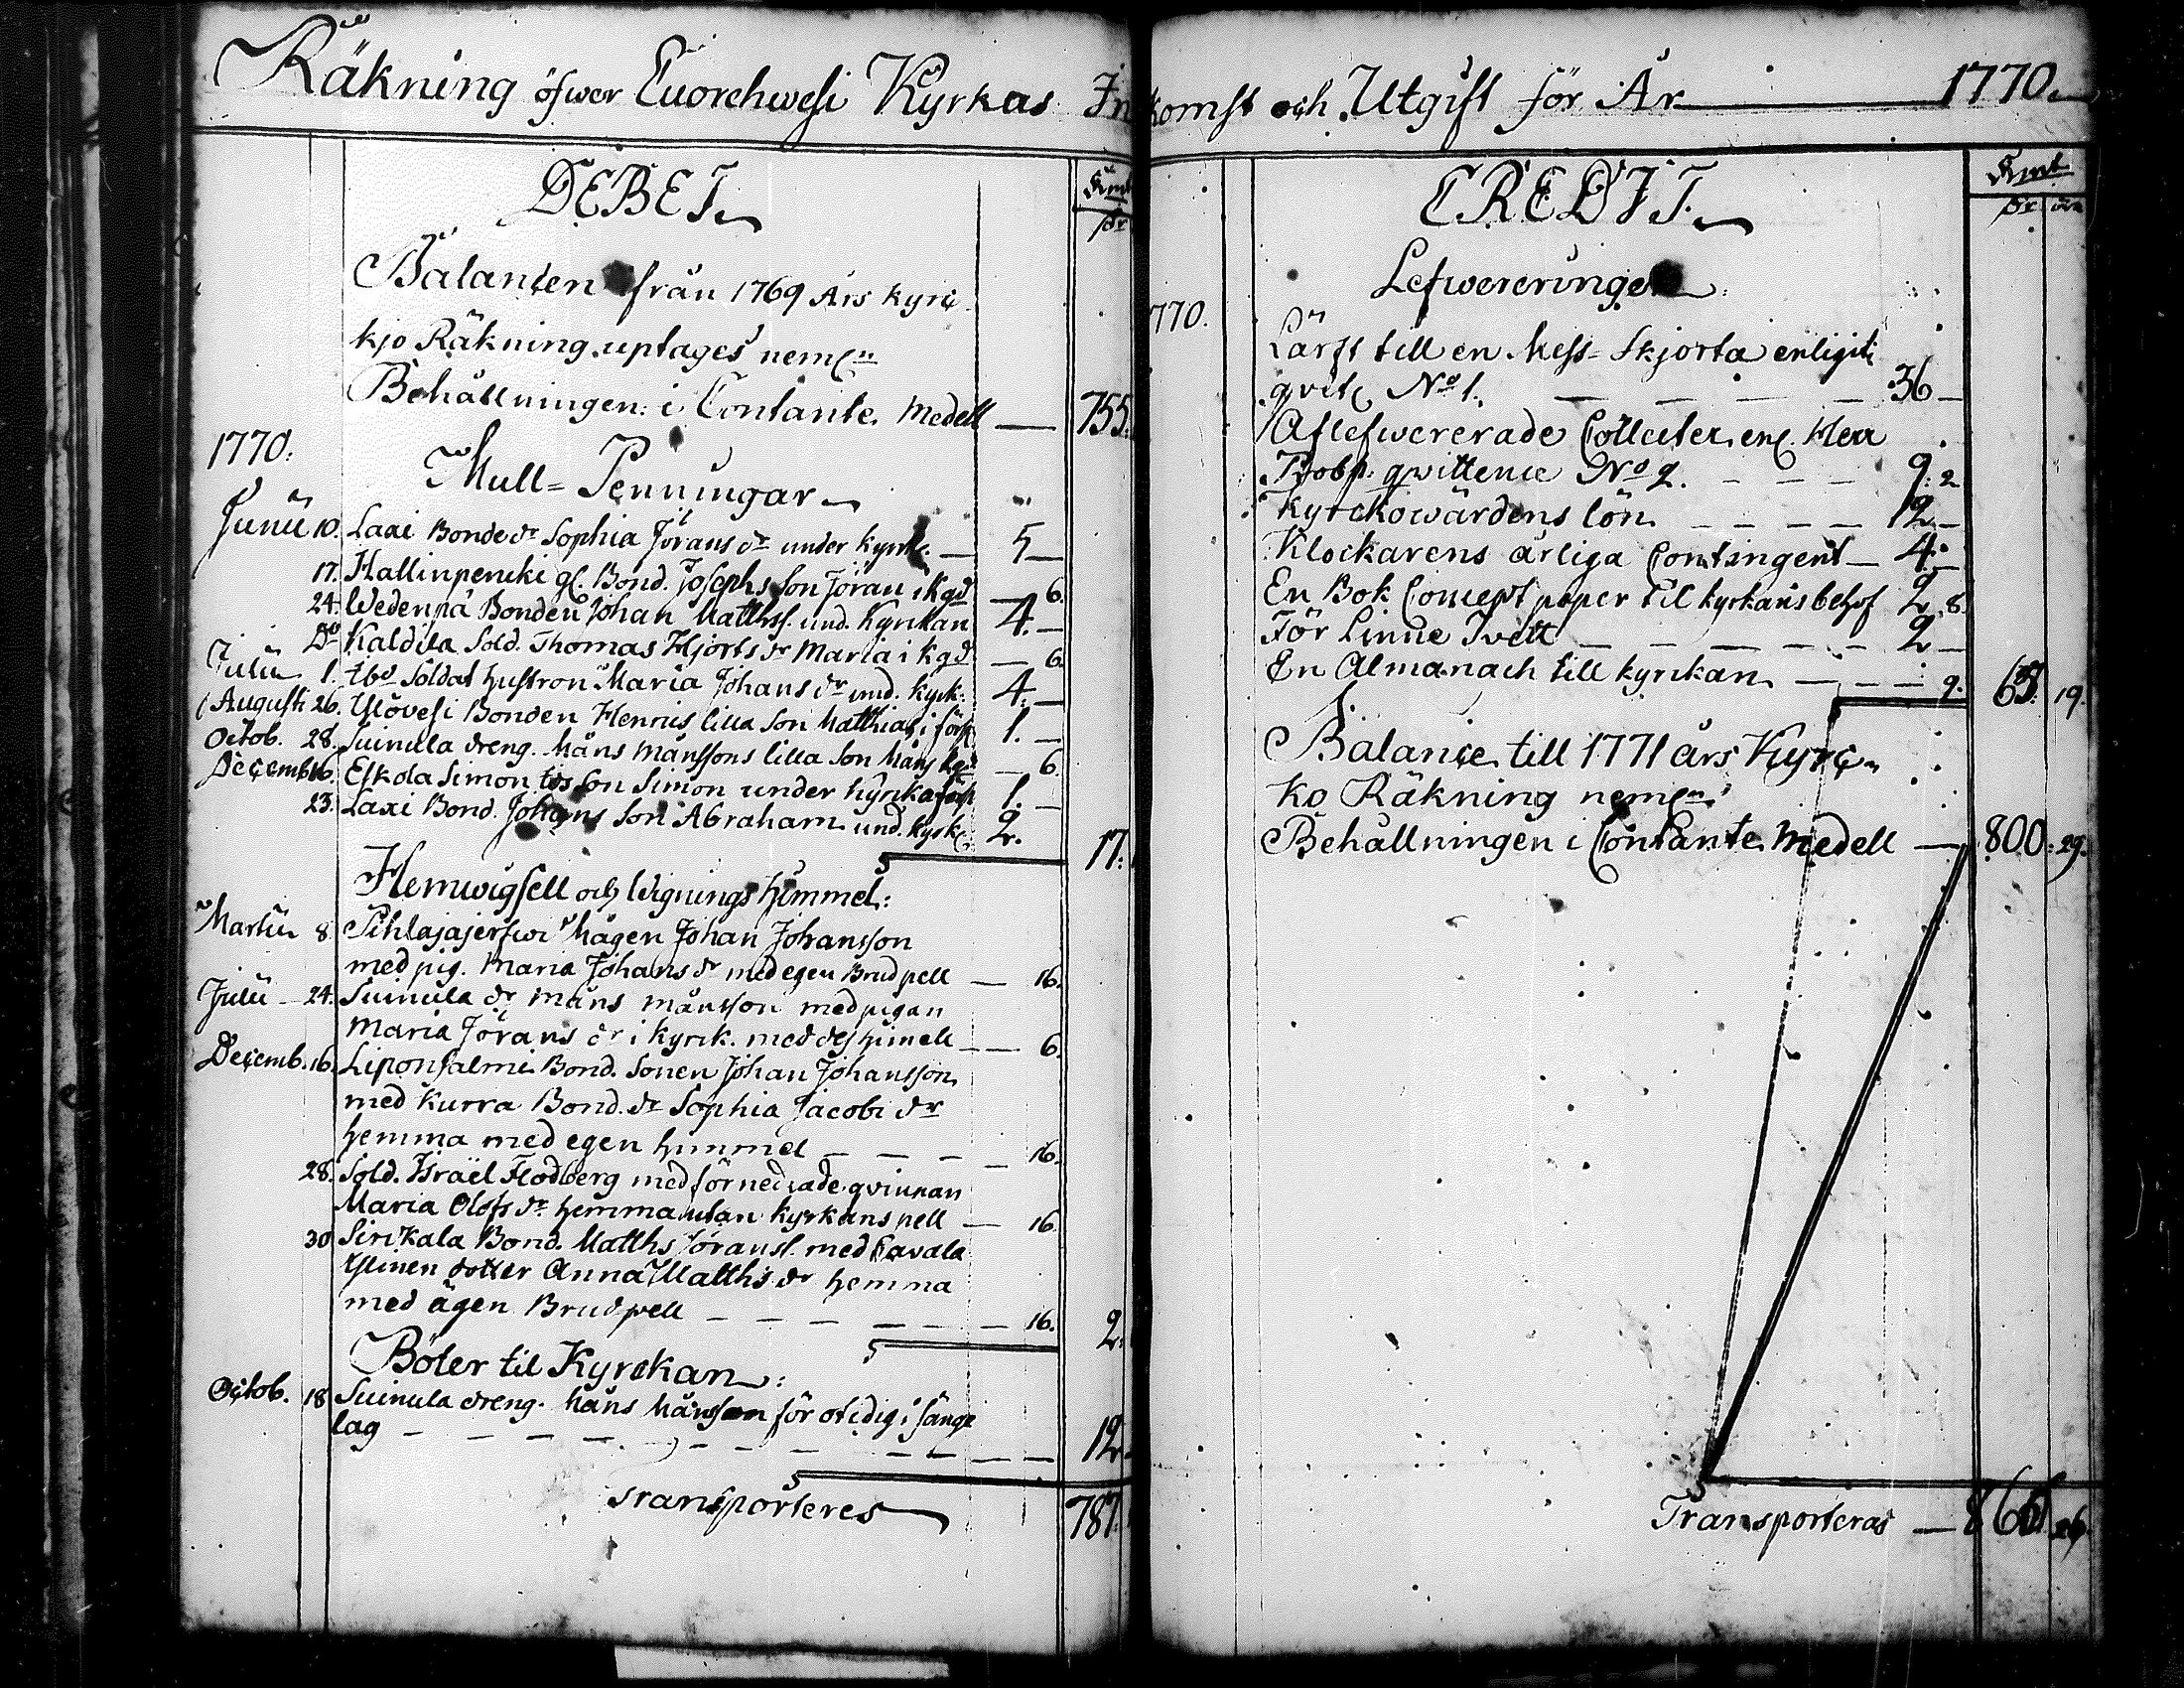 Räkning öfwer Euorchwesi Kyrkas Inkomst och Utgift för År 1770.
DEBET
Kmt
Balancen från 1769 Års kyrc
kjo Räkning uptages neml:n
Behållningen i Contante Medell — 755.
1770:
Mull= Penningar
Junii 10. Laxi Bonde dr Sophia Jörans dr under kyrk. — 5 —
17. Hallinpencki gl. Bond. Josephs Son Jöran i Kgd — 6.
24. Wedenpä Bonden Johan Matthss. und. Kyrckan 4. —
Do Kaldila Sold. Thomas Hjorts dr Maria i kgd — 6.
Julii 1. Soldat hustron Maria Johans dr und. kyrk. 4. —
Augusti 26. Ylövesi Bonden Henrics lilla Son Matthias i förs 1. —
Octob. 28. Suinula dreng. Måns Månssons lilla Son Måns kgd — 6.
Decemb. 16. Eskola Simon Son Simon under kyrcka 1. —
23. Laxi Bond. Johans Son Abraham und. kyrk. 2. 17:
Hemwigsell och Wignings himmel:
Martii 8. Pihlajajerfwi Mågen Johan Johansson
med pig. Maria Johans dr med egen Brudpell — 16.
Julii — 24. Suinula dr Måns Månsson med pigan
Maria Jörans dr i kyrck. med dess himell — 6.
Decemb. 16. Liponsalmi Bond. Sonen Johan Johansson
med Kurra Bond. dr Sophia Jacobi dr
hemma med egen himmel — — — 16.
28. Sold. Israël Flodberg med förnedrade qvinnan
Maria Olofs dr hemma utan kyrkans pell — 16.
30 Sirikala Bond. Matths Jöranss. med Cavala
Ylinen dotter Anna Matths dr hemma
med ägen Brudpell — — — — — 16. 2.
Böter til Kyrckan:
Octob. 18 Suinula dreng. Måns Månsson för otidig i sänge
lag — — — — — — — 12
Transporteres 787.
CREDIT
Kmt
dr öre
Lefwereringen:
1770. Lärft till en Mess= Skjorta enligit
qvit. No 1. — — — — 36 —
Aflefwererade Collecter enl. Herr
Probst: qwittence No 2. — — — 9: 2
Kyrckowärdens lön — — — — 12. —
Klockarens årliga Contingent — 4. —
En Bok Concept paper til kyrkans behof 2. 8.
För Linne Tvett — — — — — 2 —
En Almanach till kyrckan — — — 9. 65. 19.
Balance till 1771 års Kyrc
ko Räkning neml:n
Behållningen i Contante Medell — 800: 29.
Transporteras — 866